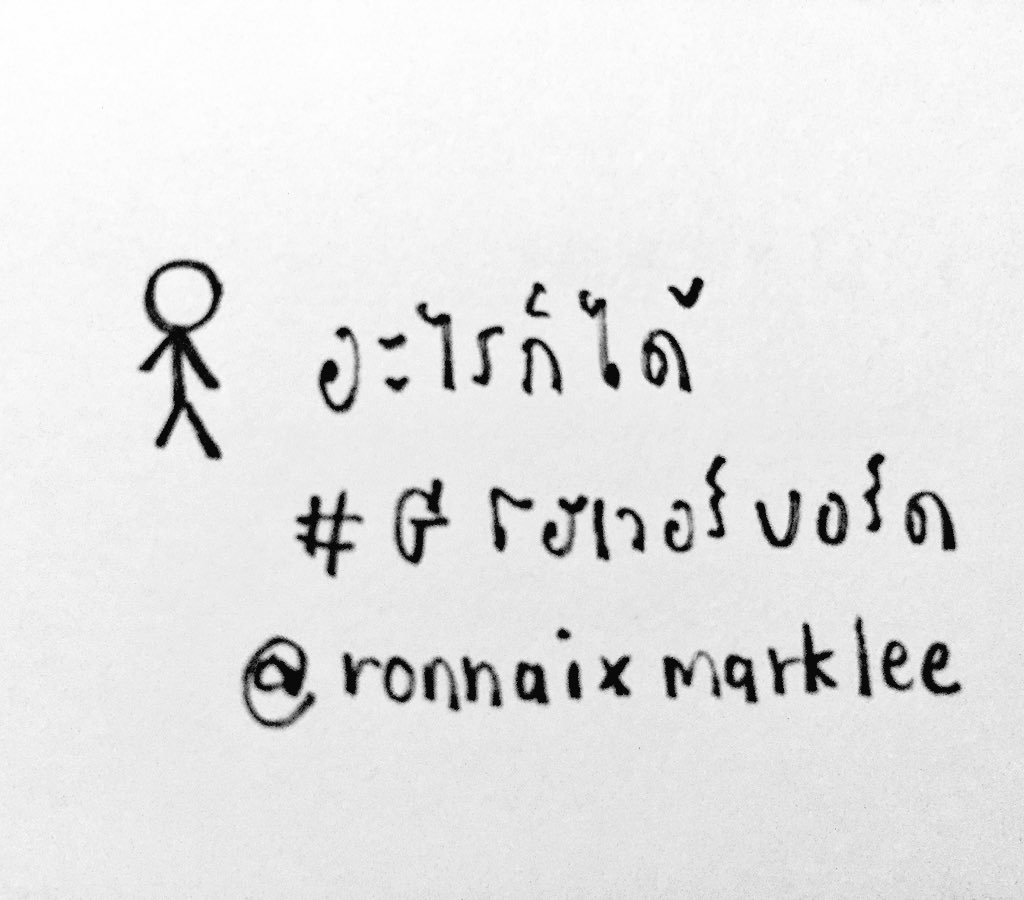 อะไรก็ได้
# โฮเวอร์บอร์ด
@ronnaixmarklee